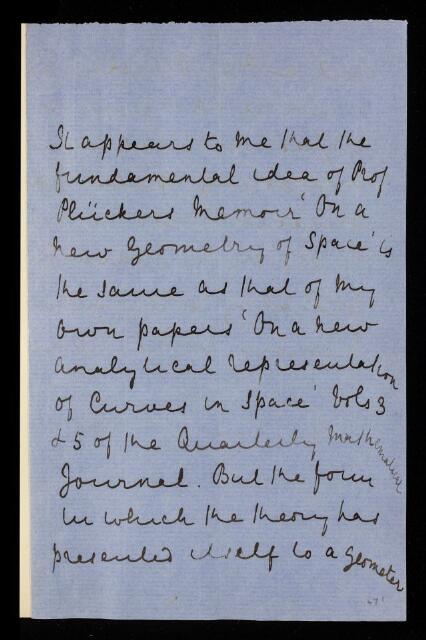 It appears to me that the
fundamental idea of Prof
Plückers Memoir 'On a
new Geometry of Space' is
the same as that of my
own papers 'On a new
analytical representation
of Curves in Space' Vols 3
& 5 of the Quarterly Mathematical
Journal. But the form
in which the theory has
presented itself to a geometer